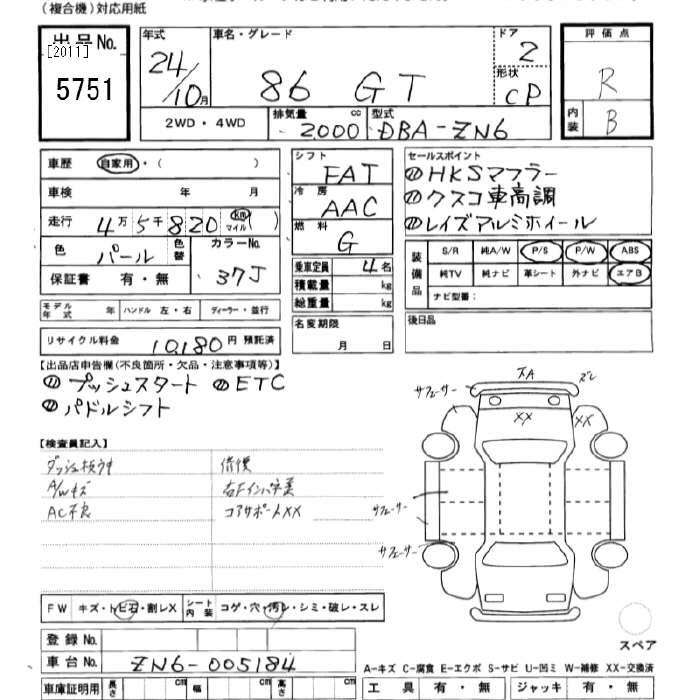 (複合機)対応用紙
出品No.
[2011]
5751
年式
24/10月
車名・グレード
86 GT
ドア
2
形状
CP
評価点
R
内装
B
2WD・4WD
排気量 cc
2000
型式
DBA-ZN6
車歴 自家用・( )
車検 年 月
走行 4万5千820 km マイル ( )
色 パール 色替
カラーNo.
37J
保証書 有・無
モデル年式 年 ハンドル 左・右 ディーラー・並行
リサイクル料金 10,180円 預託済
シフト
FAT
冷房
AAC
燃料
G
乗車定員 4名
積載量 kg
総重量 kg
名変期限
月 日
セールスポイント
① HKSマフラー
① クスコ車高調
① レイズアルミホイール
装備品
S/R 純A/W P/S P/W ABS
純TV 純ナビ 革シート 外ナビ エアB
ナビ型番:
後日品
【出品店申告欄(不良箇所・欠品・注意事項等)】
① プッシュスタート ① ETC
① パドルシフト
【検査員記入】
ダッシュ板ウキ
A/Wキズ
AC不良
修復
右Fインパネ歪
コアサポートXX
XA
ズレ
サフェーサー
XX
XX
サフェーサー
サフェーサー
サフェーサー
FW キズ・トビ石・割レX
シート内装 コゲ・穴・汚レ・シミ・破レ・スレ
スペア
登録No.
車台No. ZN6-005184
車庫証明用 長さ cm 幅 cm 高さ cm
A-キズ C-腐食 E-エクボ S-サビ U-凹ミ W-補修 XX-交換済
工具 有・無 ジャッキ 有・無